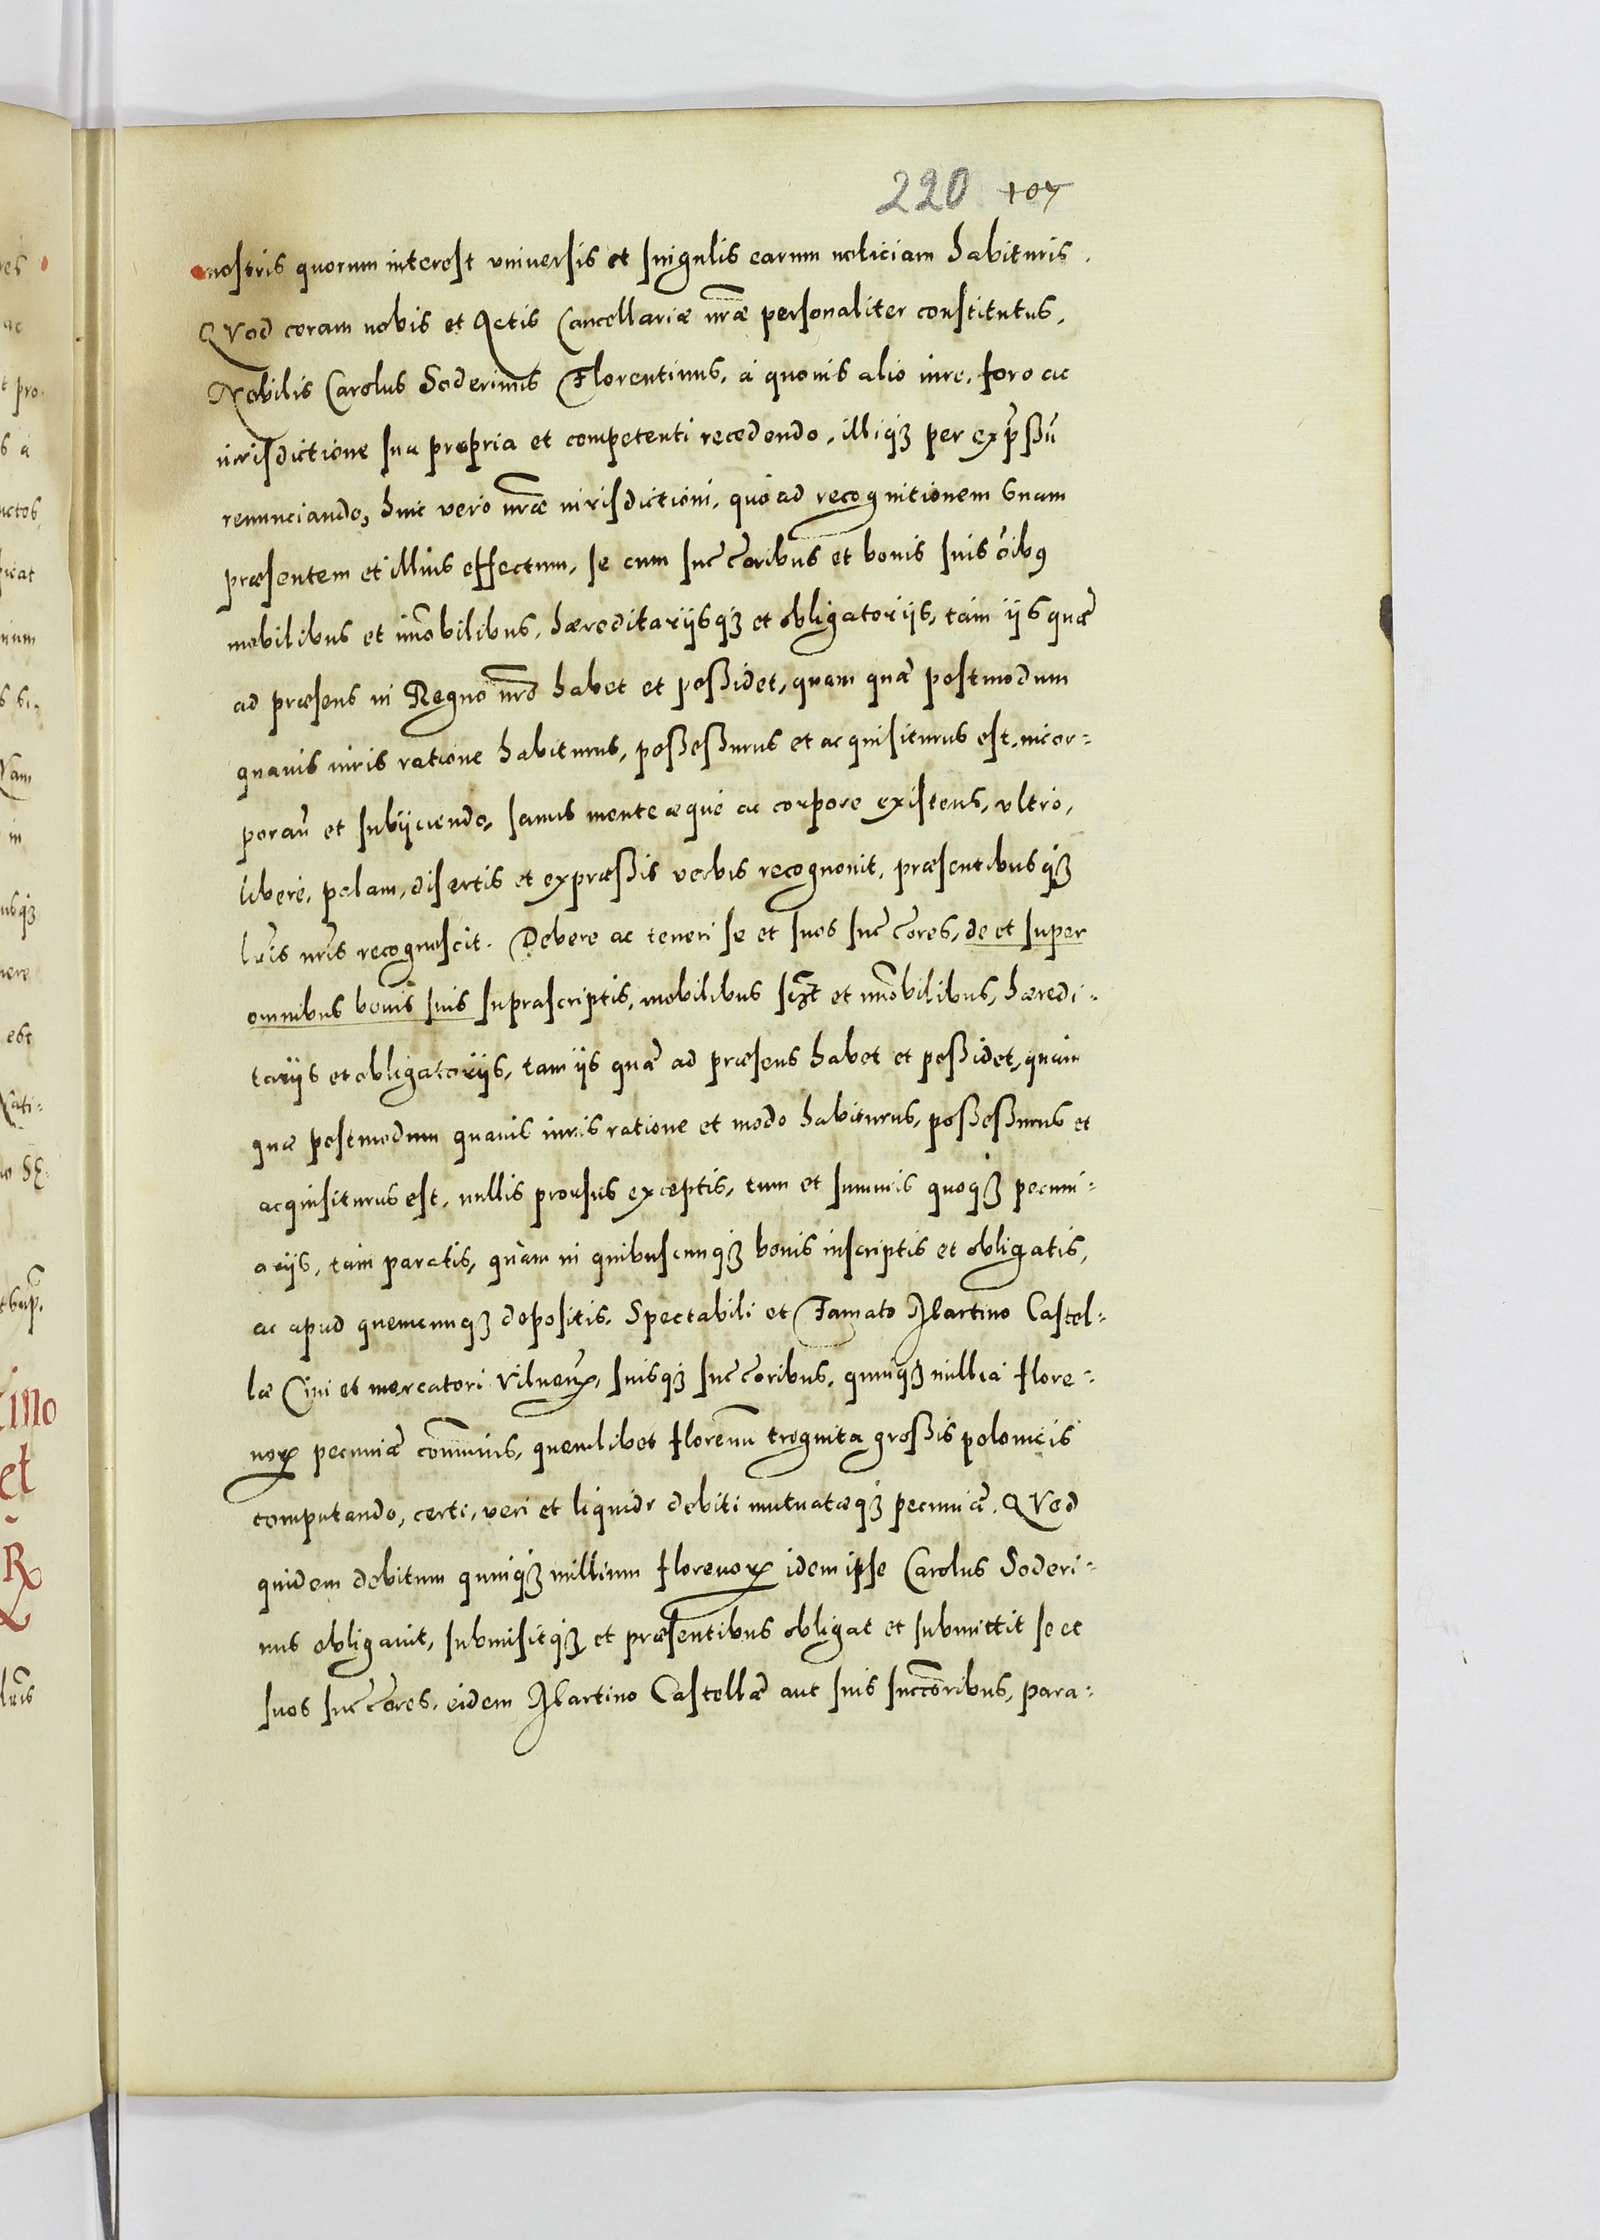 220 107
nostris quorum interest vniuersis et singulis earum noticiam habituris.
QVod coram nobis et Actis Cancellariæ nr̃æ personaliter constitutus,
Nobilis Carolus Soderinus Florentinus, à quouis alio iure, foro ac
iurisdictione sua propria et competenti recedendo, illiqꝫ per exp̃ssũ
renunciando, huic verò nr̃æ iurisdictioni, quò ad recognitionem vnam
præsentem et illius effectum, se cum suc̃c̃oribus et bonis suis oĩbꝰ
mobilibus et im̃obilibus, hæreditarijsqꝫ et obligatorijs, tam ijs quæ
ad præsens in Regno nr̃o habet et possidet, quam quæ postmodum
quauis iuris ratione habiturus, possessurus et acquisiturus est, incor-
porañ et subijciendo, sanus mente æquè ac corpore existens, vltrò,
liberè, palam, disertis et expræssis verbis recognouit, præsentibusqꝫ
lr̃is nr̃is recognoscit. Debere ac teneri se et suos suc̃c̃ores, de et super
omnibus bonis suis suprascriptis, mobilibus scꝫt et im̃obilibus, hæredi-
tarijs et obligatorijs, tam ijs quæ ad præsens habet et possidet, quàm
quæ postmodum quauis iuris ratione et modo habiturus, possessurus et
acquisiturus est, nullis prorsus exceptis, tum et summis quoqꝫ pecuni-
arijs, tàm paratis, quàm in quibuscunqꝫ bonis inscriptis et obligatis,
ac apud quemcunqꝫ depositis. Spectabili et Famato Martino Castel-
læ Ciui et mercatori Vilneñ, suisqꝫ suc̃c̃oribus, quinqꝫ millia flore-
noꝝ pecuniæ com̃unis, quemlibet florenũ triginta grossis polonicis
computando, certi, veri et liquidi debiti mutuatæqꝫ pecuniæ. QVod
quidem debitum quinqꝫ millium florenoꝝ idem ipse Carolus Soderi-
nus obligauit, submisitqꝫ et præsentibus obligat et submittit se et
suos suc̃c̃ores, eidem Martino Castellæ aut suis succ̃oribus, para-